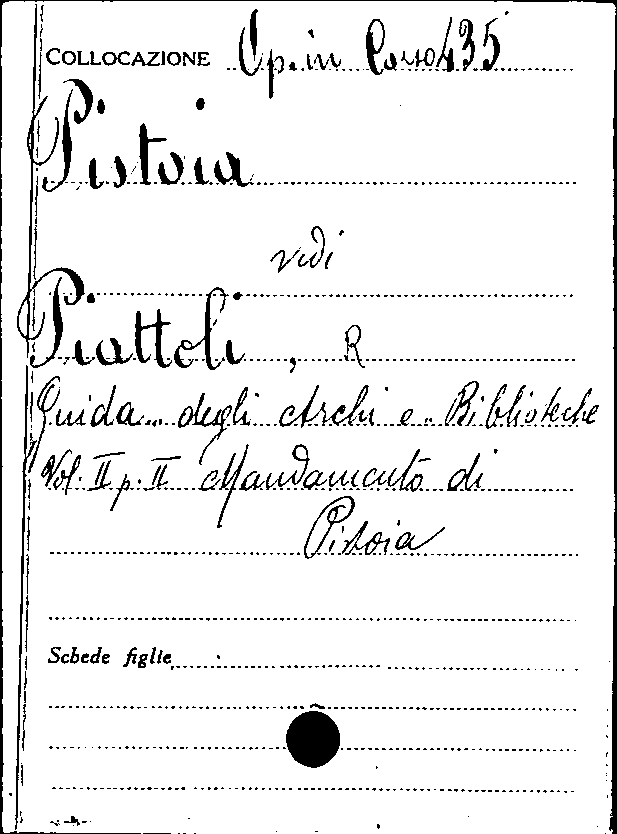 COLLOCAZIONE Op. in Corso 435
Pistoia
vedi
Piattoli, R
Guida... degli Archi e.. Biblioteche
Vol. II p. II Mandamento di
Pistoia
Schede figlie